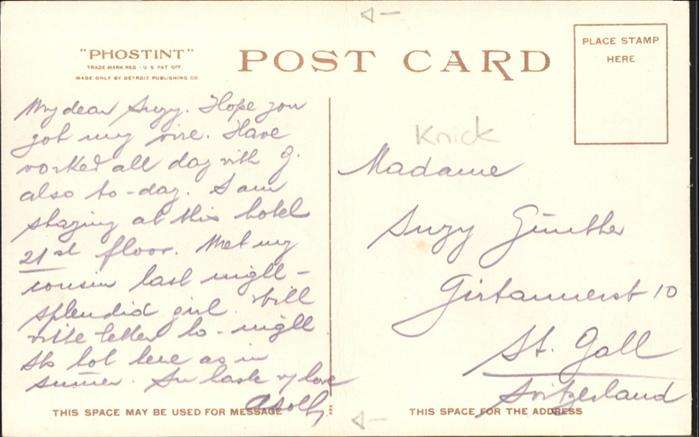 "PHOSTINT"
TRADE MARK REG. U.S. PAT. OFF.
MADE ONLY BY DETROIT PUBLISHING CO.
POST CARD
PLACE STAMP
HERE
My dear Suzy. Hope you
got my wire. Have
worked all day with G.
also to-day. I am
staying at this hotel
21st floor. Met my
cousin last night –
splendid girl. Will
write letter to-night
Its hot here as in
summer. In haste my love
Adolf
THIS SPACE MAY BE USED FOR MESSAGE
Knick
Madame
Suzy Günther
Girtannerst 10
St. Gall
Switzerland
THIS SPACE FOR THE ADDRESS